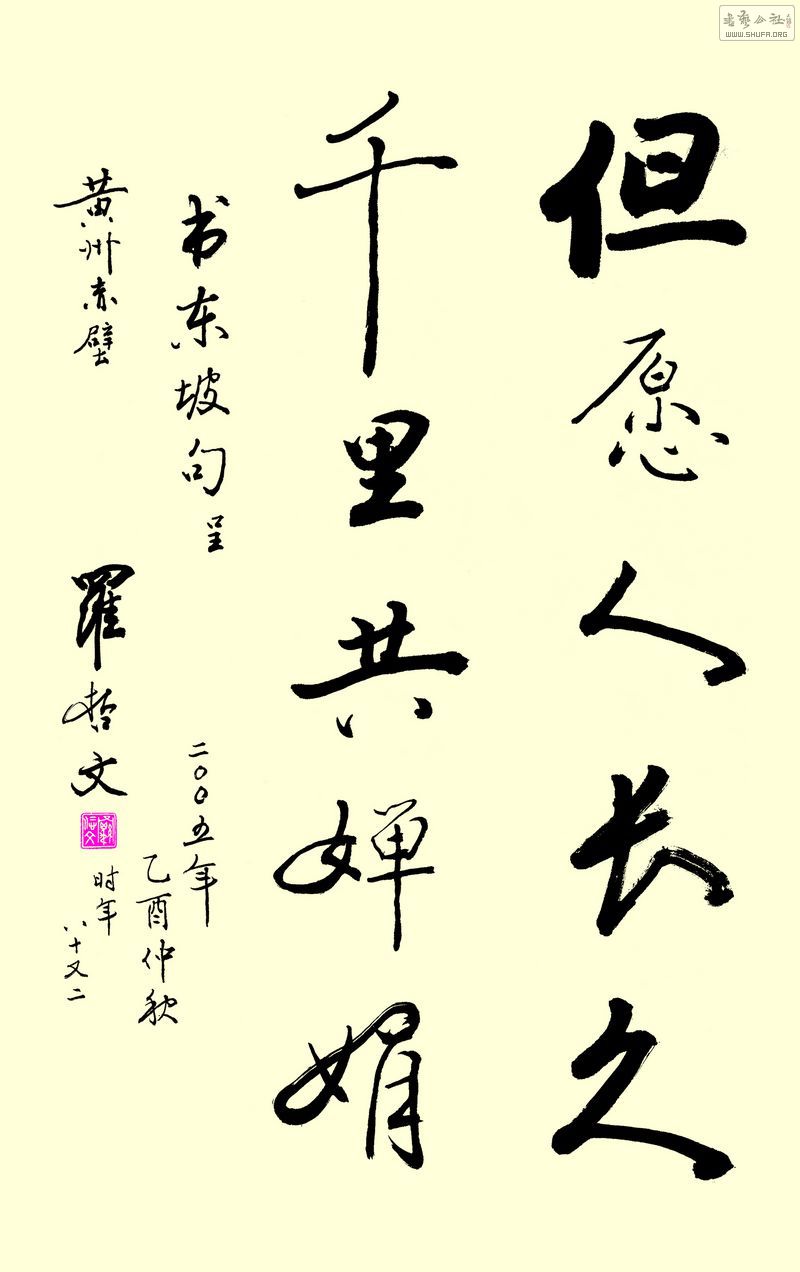 但愿人长久
千里共婵娟
书东坡句呈
黄州赤壁
二〇〇五年
乙酉仲秋
羅哲文
时年
八十又二
書藝公社
WWW.SHUFA.ORG